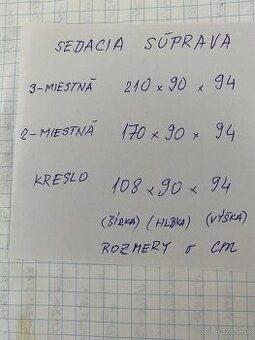 SEDACIA SÚPRAVA
3-MIESTNÁ 210 x 90 x 94
2-MIESTNÁ 170 x 90 x 94
KRESLO 108 x 90 x 94
(ŠÍRKA) (HĹBKA) (VÝŠKA)
ROZMERY v CM